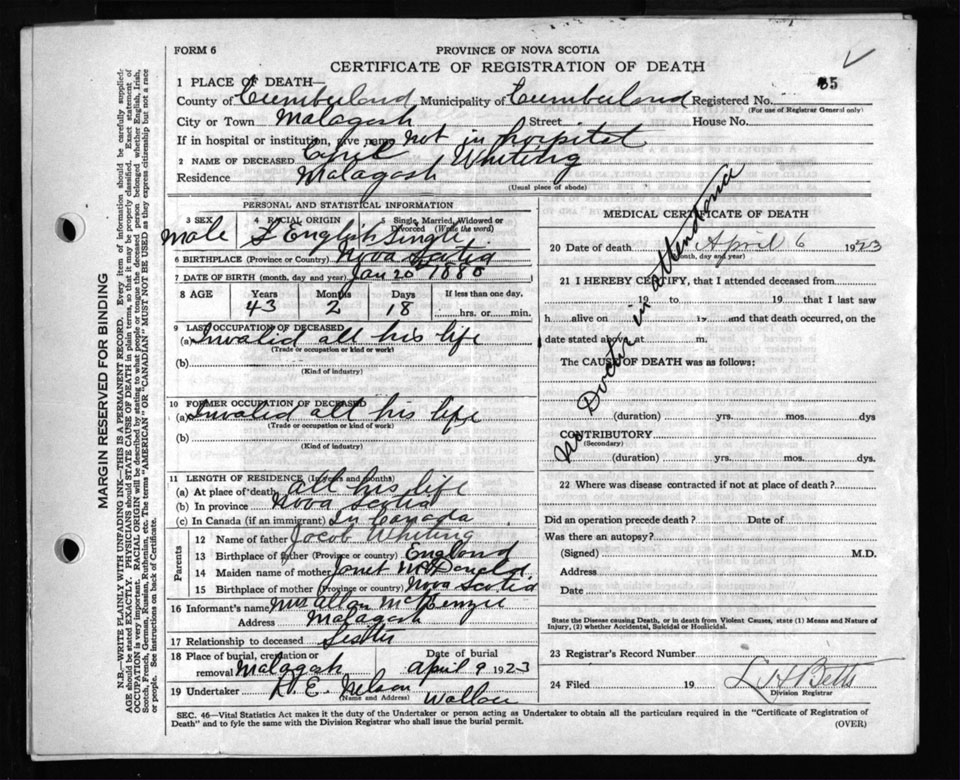 FORM 6
PROVINCE OF NOVA SCOTIA
CERTIFICATE OF REGISTRATION OF DEATH
85
1 PLACE OF DEATH—
County of Cumberland Municipality of Cumberland Registered No.
(For use of Registrar General only)
City or Town Malagash Street House No.
If in hospital or institution, give name not in hospital
2 NAME OF DECEASED Whiting
Residence Malagash
(Usual place of abode)
PERSONAL AND STATISTICAL INFORMATION
3 SEX 4 RACIAL ORIGIN 5 Single, Married, Widowed or Divorced (Write the word)
male English Single
6 BIRTHPLACE (Province or Country) Nova Scotia
7 DATE OF BIRTH (month, day and year) Jan 20 1880
8 AGE Years Months Days If less than one day,
43 2 18 hrs. or min.
9 LAST OCCUPATION OF DECEASED
(a) Invalid all his life
(Trade or occupation or kind or work)
(b)
(Kind of industry)
10 FORMER OCCUPATION OF DECEASED
(a) Invalid all his life
(Trade or occupation or kind of work)
(b)
(Kind of industry)
11 LENGTH OF RESIDENCE (In years and months)
(a) At place of death all his life
(b) In province Nova Scotia
(c) In Canada (if an immigrant) In Canada
Parents
12 Name of father Jacob Whiting
13 Birthplace of father (Province or country) England
14 Maiden name of mother Janet McDonald
15 Birthplace of mother (Province or country) Nova Scotia
16 Informant's name Mrs Allan McKenzie
Address Malagash
17 Relationship to deceased Sister
18 Place of burial, cremation or removal Malagash Date of burial April 9 1923
19 Undertaker R. E. Nelson
(Name and Address) Wallace
MEDICAL CERTIFICATE OF DEATH
20 Date of death April 6 1923
(Month, day and year)
21 I HEREBY CERTIFY, that I attended deceased from
19 to 19 that I last saw
h alive on 19 and that death occurred, on the
date stated above at m.
The CAUSE OF DEATH was as follows:
No Doctor in attendance
(duration) yrs. mos. dys
CONTRIBUTORY
(Secondary)
(duration) yrs. mos. dys.
22 Where was disease contracted if not at place of death?
Did an operation precede death? Date of
Was there an autopsy?
(Signed) M.D.
Address
Date
State the Disease causing Death, or in death from Violent Causes, state (1) Means and Nature of Injury, (2) whether Accidental, Suicidal or Homicidal.
23 Registrar's Record Number
24 Filed 19 L H Betts
Division Registrar
SEC. 46—Vital Statistics Act makes it the duty of the Undertaker or person acting as Undertaker to obtain all the particulars required in the "Certificate of Registration of
Death" and to fyle the same with the Division Registrar who shall issue the burial permit.
(OVER)
MARGIN RESERVED FOR BINDING
N.B.—WRITE PLAINLY WITH UNFADING INK—THIS IS A PERMANENT RECORD. Every item of information should be carefully supplied:
AGE should be stated EXACTLY. PHYSICIANS should STATE CAUSE OF DEATH in plain terms, so that it may be properly classified. Exact statement of
OCCUPATION is very important. RACIAL ORIGIN will be described by stating to what people or tongue the deceased person belonged whether English, Irish,
Scotch, French, German, Russian, Ruthenian, etc. The terms "AMERICAN" OR "CANADIAN" MUST NOT BE USED as they express citizenship but not a race
or people. See instructions on back of Certificate.